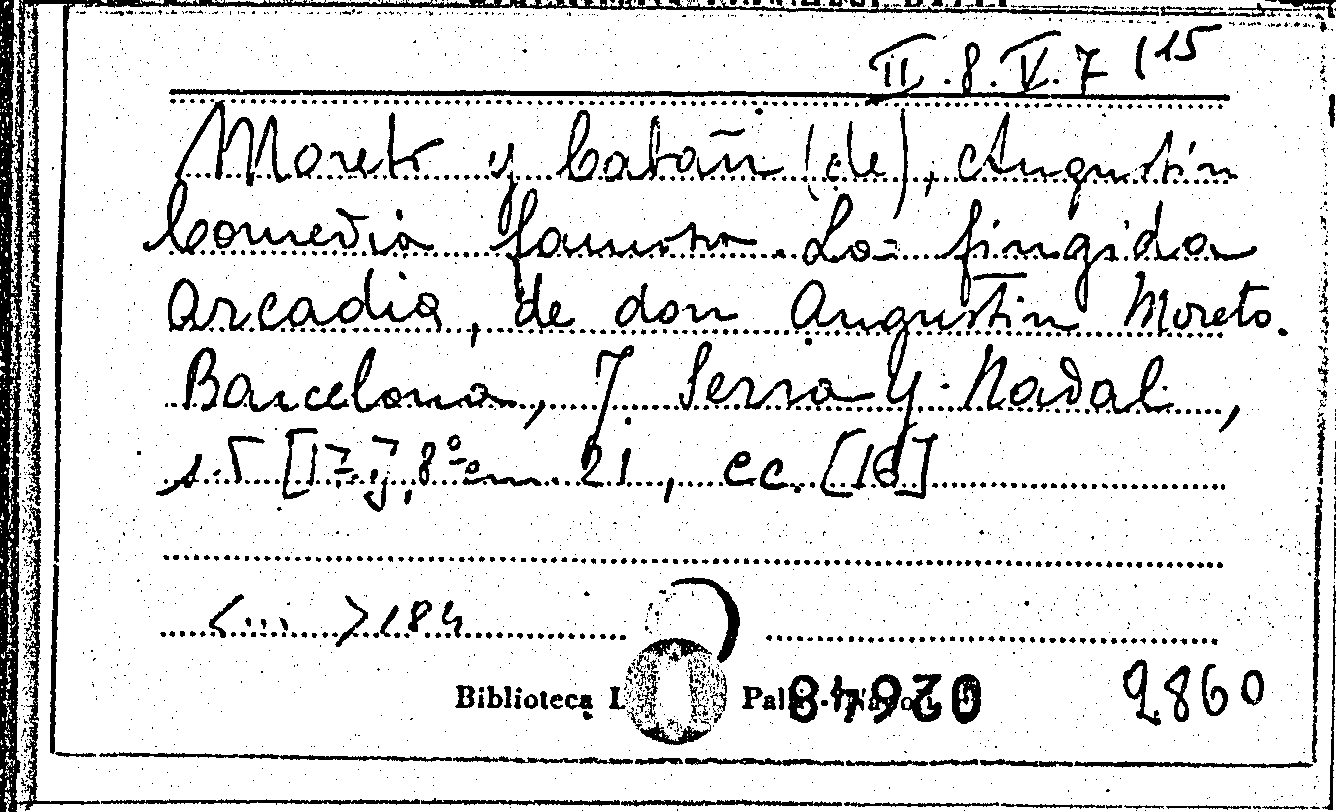 II.8.V.7 (15
Moreto y Cabañ (de), Augustin
Comedia famosa. La fingida
Arcadia, de don Augustin Moreto.
Barcelona, J. Serra y Nadal,
s.T [17..], 8º cm. 21, cc. [16]
<... >184
Biblioteca
02648
2860